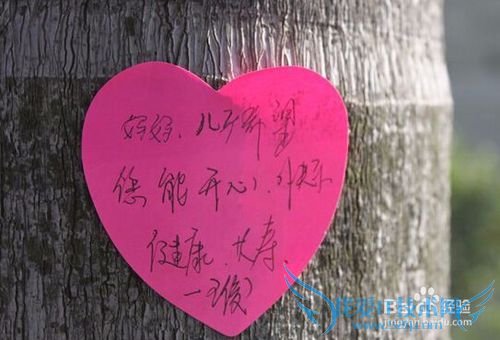 妈妈、儿子希望
您能开心、快乐
健康、长寿
一俊
Baidu 经验
jingyan.baidu.com